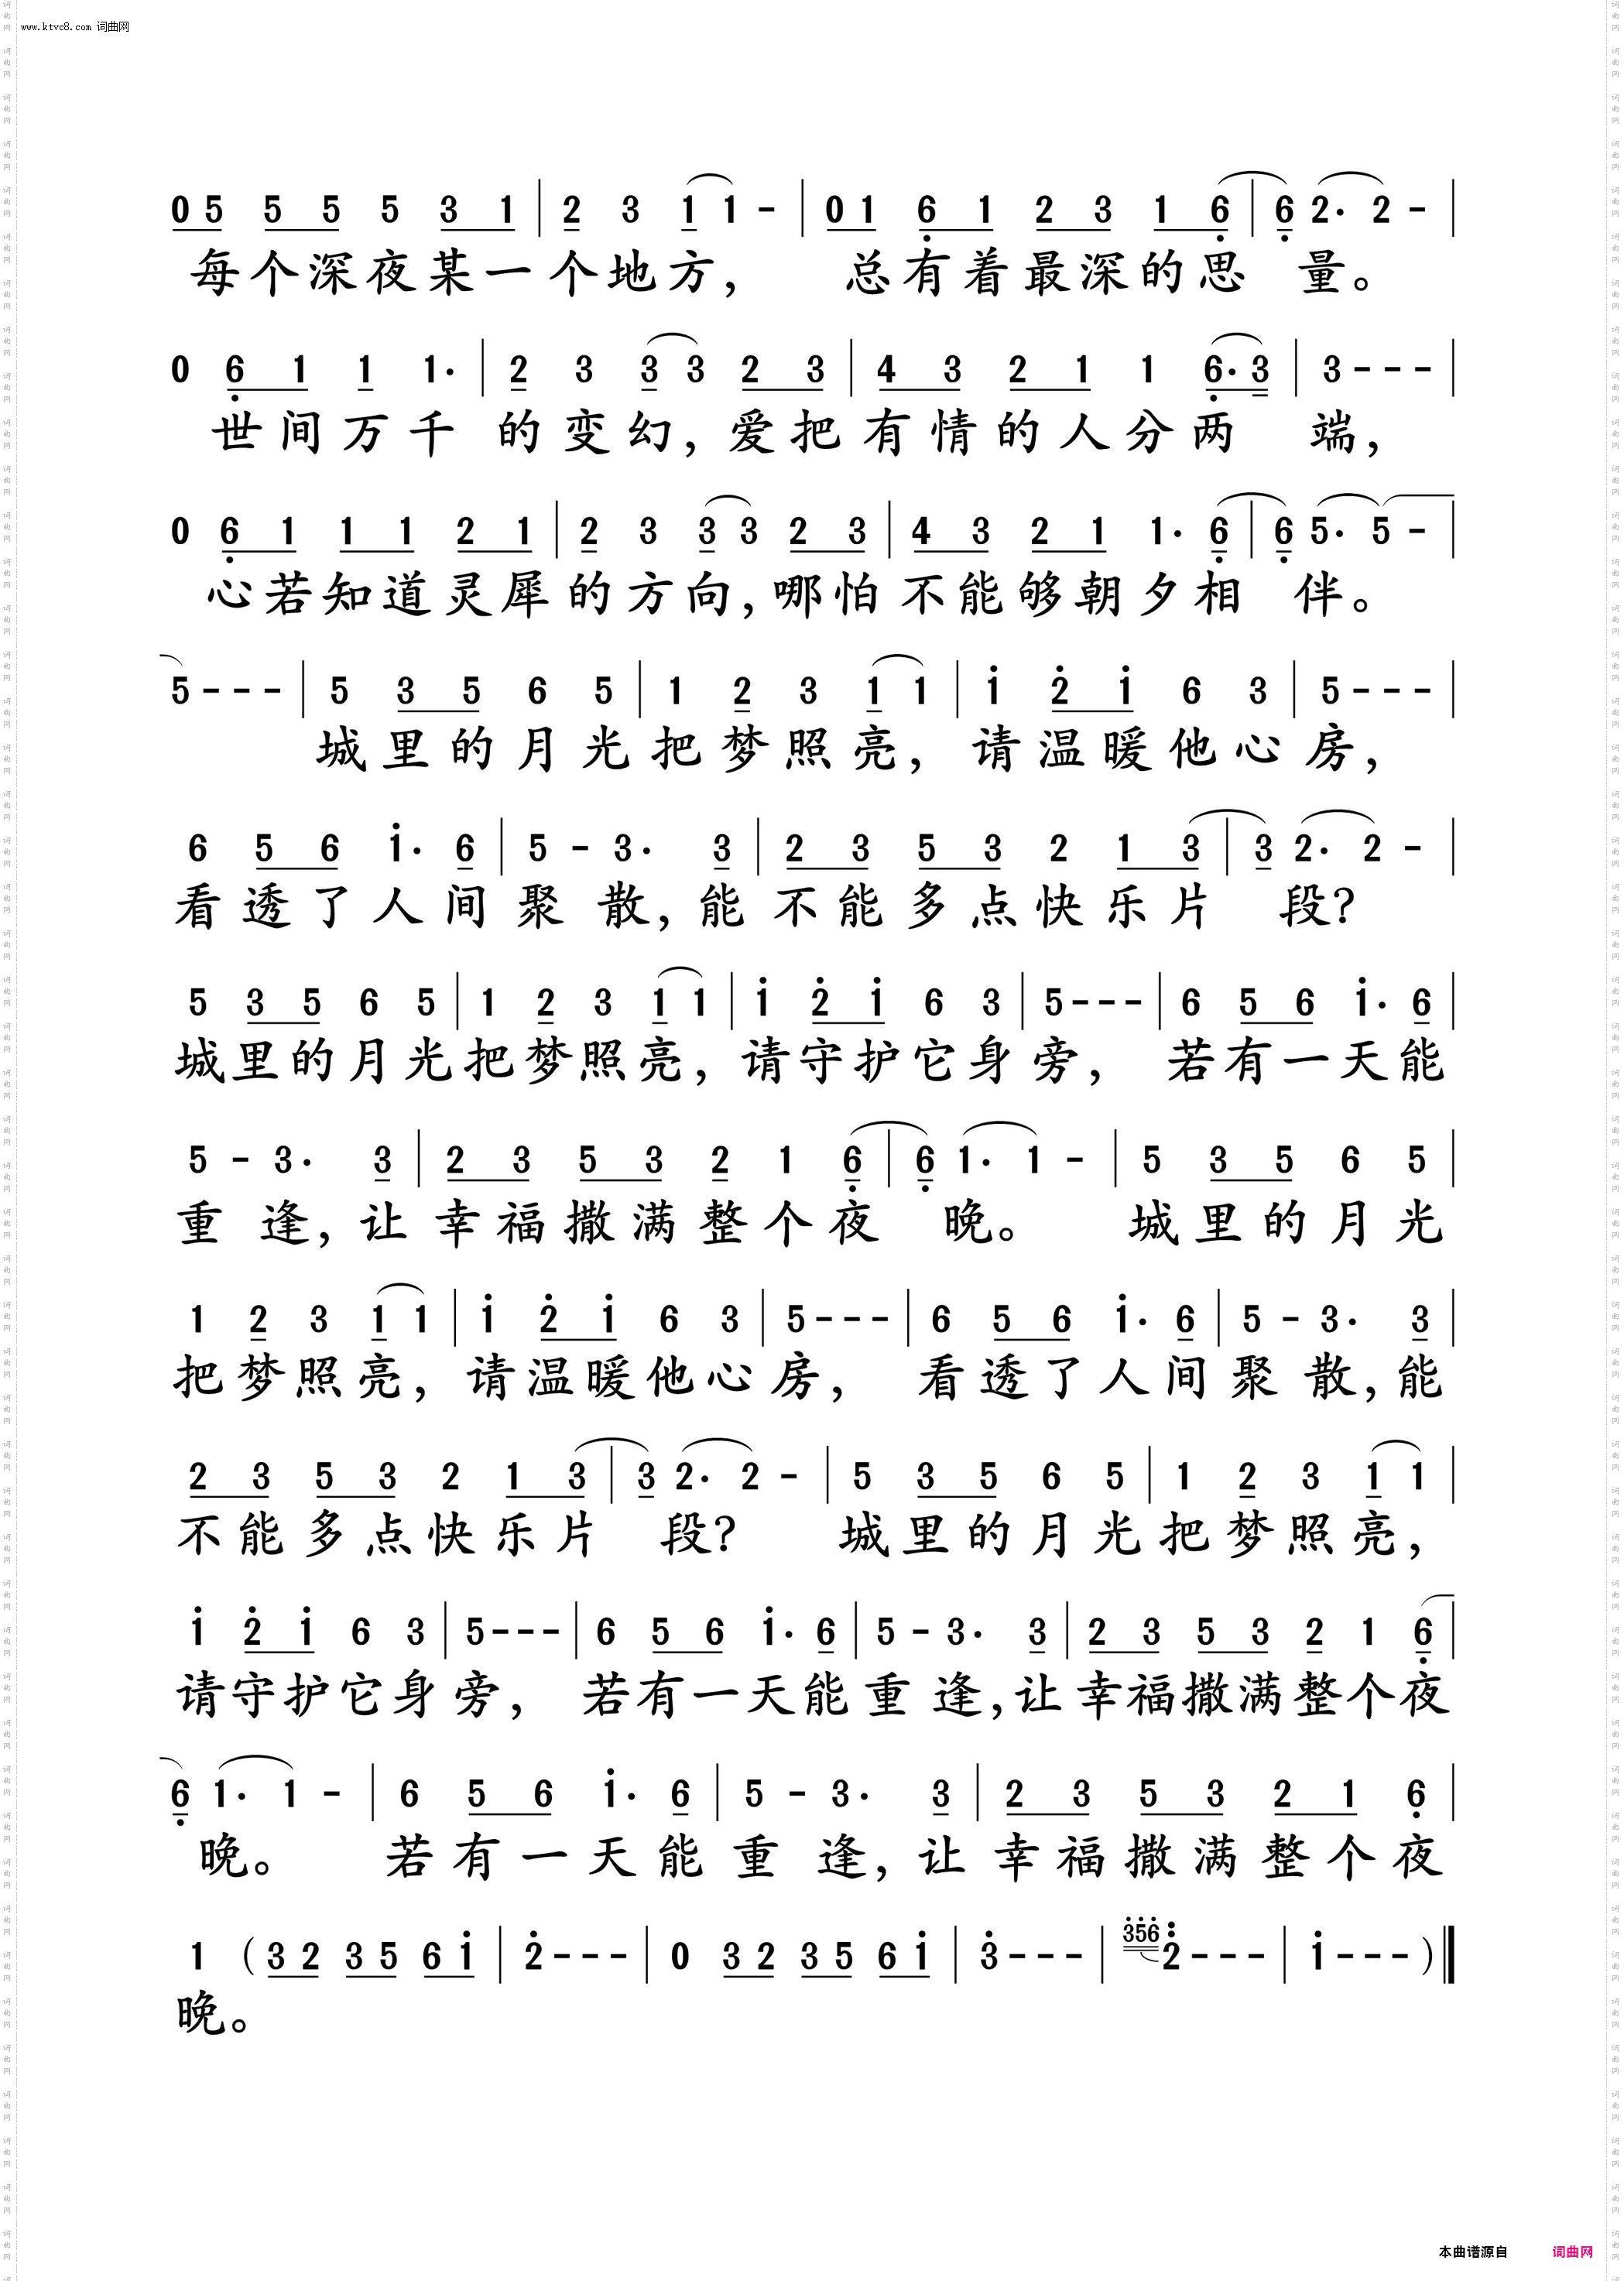 www.ktvc8.com 词曲网
0 5 5 5 5 3 1 | 2 3 1 1 - | 0 1 6 1 2 3 1 6 | 6 2· 2 - |
每个深夜某一个地方， 总有着最深的思 量。
0 6 1 1 1· | 2 3 3 3 2 3 | 4 3 2 1 1 6· 3 | 3 - - - |
世间万千 的变幻，爱把有情的人分两 端，
0 6 1 1 1 2 1 | 2 3 3 3 2 3 | 4 3 2 1 1· 6 | 6 5· 5 - |
心若知道灵犀的方向，哪怕不能够朝夕相 伴。
5 - - - | 5 3 5 6 5 | 1 2 3 1 1 | i 2 i 6 3 | 5 - - - |
城里的月光把梦照亮，请温暖他心房，
6 5 6 i· 6 | 5 - 3· 3 | 2 3 5 3 2 1 3 | 3 2· 2 - |
看透了人间聚散，能不能多点快乐片 段？
5 3 5 6 5 | 1 2 3 1 1 | i 2 i 6 3 | 5 - - - | 6 5 6 i· 6 |
城里的月光把梦照亮，请守护它身旁， 若有一天能
5 - 3· 3 | 2 3 5 3 2 1 6 | 6 1· 1 - | 5 3 5 6 5 |
重逢，让幸福撒满整个夜 晚。 城里的月光
1 2 3 1 1 | i 2 i 6 3 | 5 - - - | 6 5 6 i· 6 | 5 - 3· 3 |
把梦照亮，请温暖他心房， 看透了人间聚散，能
2 3 5 3 2 1 3 | 3 2· 2 - | 5 3 5 6 5 | 1 2 3 1 1 |
不能多点快乐片 段？ 城里的月光把梦照亮，
i 2 i 6 3 | 5 - - - | 6 5 6 i· 6 | 5 - 3· 3 | 2 3 5 3 2 1 6 |
请守护它身旁， 若有一天能重逢，让幸福撒满整个夜
6 1· 1 - | 6 5 6 i· 6 | 5 - 3· 3 | 2 3 5 3 2 1 6 |
晚。 若有一天能重逢，让幸福撒满整个夜
1 （3 2 3 5 6 i | 2 - - - | 0 3 2 3 5 6 i | 3 - - - | 356 2 - - - | i - - - ）
晚。
本曲谱源自 词曲网